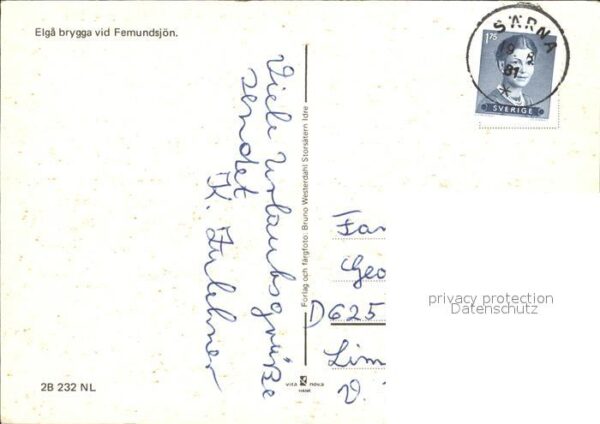 Elgå brygga vid Femundsjön.
SÄRNA
81
1.75
SVERIGE
Viele Urlaubsgrüße
sendet
K.
Förlag och färgfoto: Bruno Westerdahl Storsätern Idre
Fam
Geo
D 625
Lim
V.
privacy protection
Datenschutz
2B 232 NL
vita nova